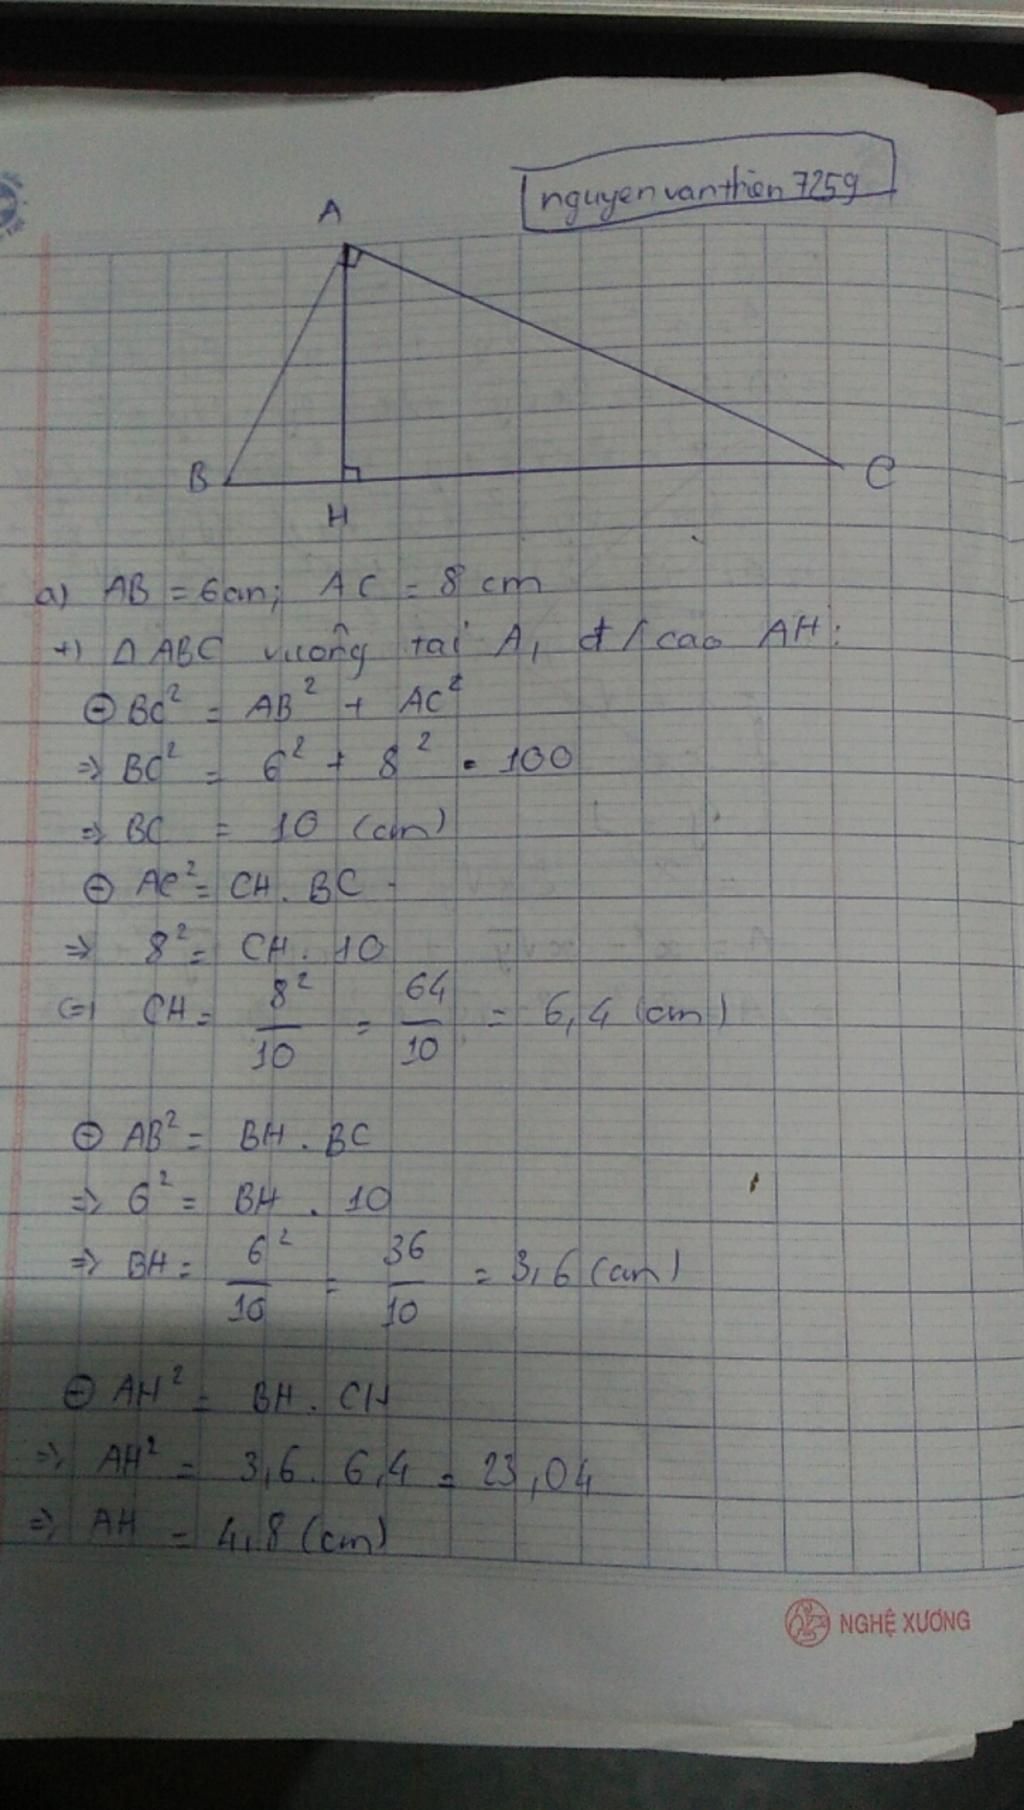 nguyenvanthien7259
A
B
H
C
a) AB = 6cm; AC = 8 cm
+) Δ ABC vuông tại A, đ/cao AH:
⊖ BC² = AB² + AC²
=> BC² = 6² + 8² = 100
=> BC = 10 (cm)
⊖ AC² = CH . BC
=> 8² = CH . 10
(=) CH = 8²/10 = 64/10 = 6,4 (cm)
⊖ AB² = BH . BC
=> 6² = BH . 10
=> BH = 6²/10 = 36/10 = 3,6 (cm)
⊖ AH² = BH . CH
=> AH² = 3,6 . 6,4 = 23,04
=> AH = 4,8 (cm)
NGHỆ XƯƠNG